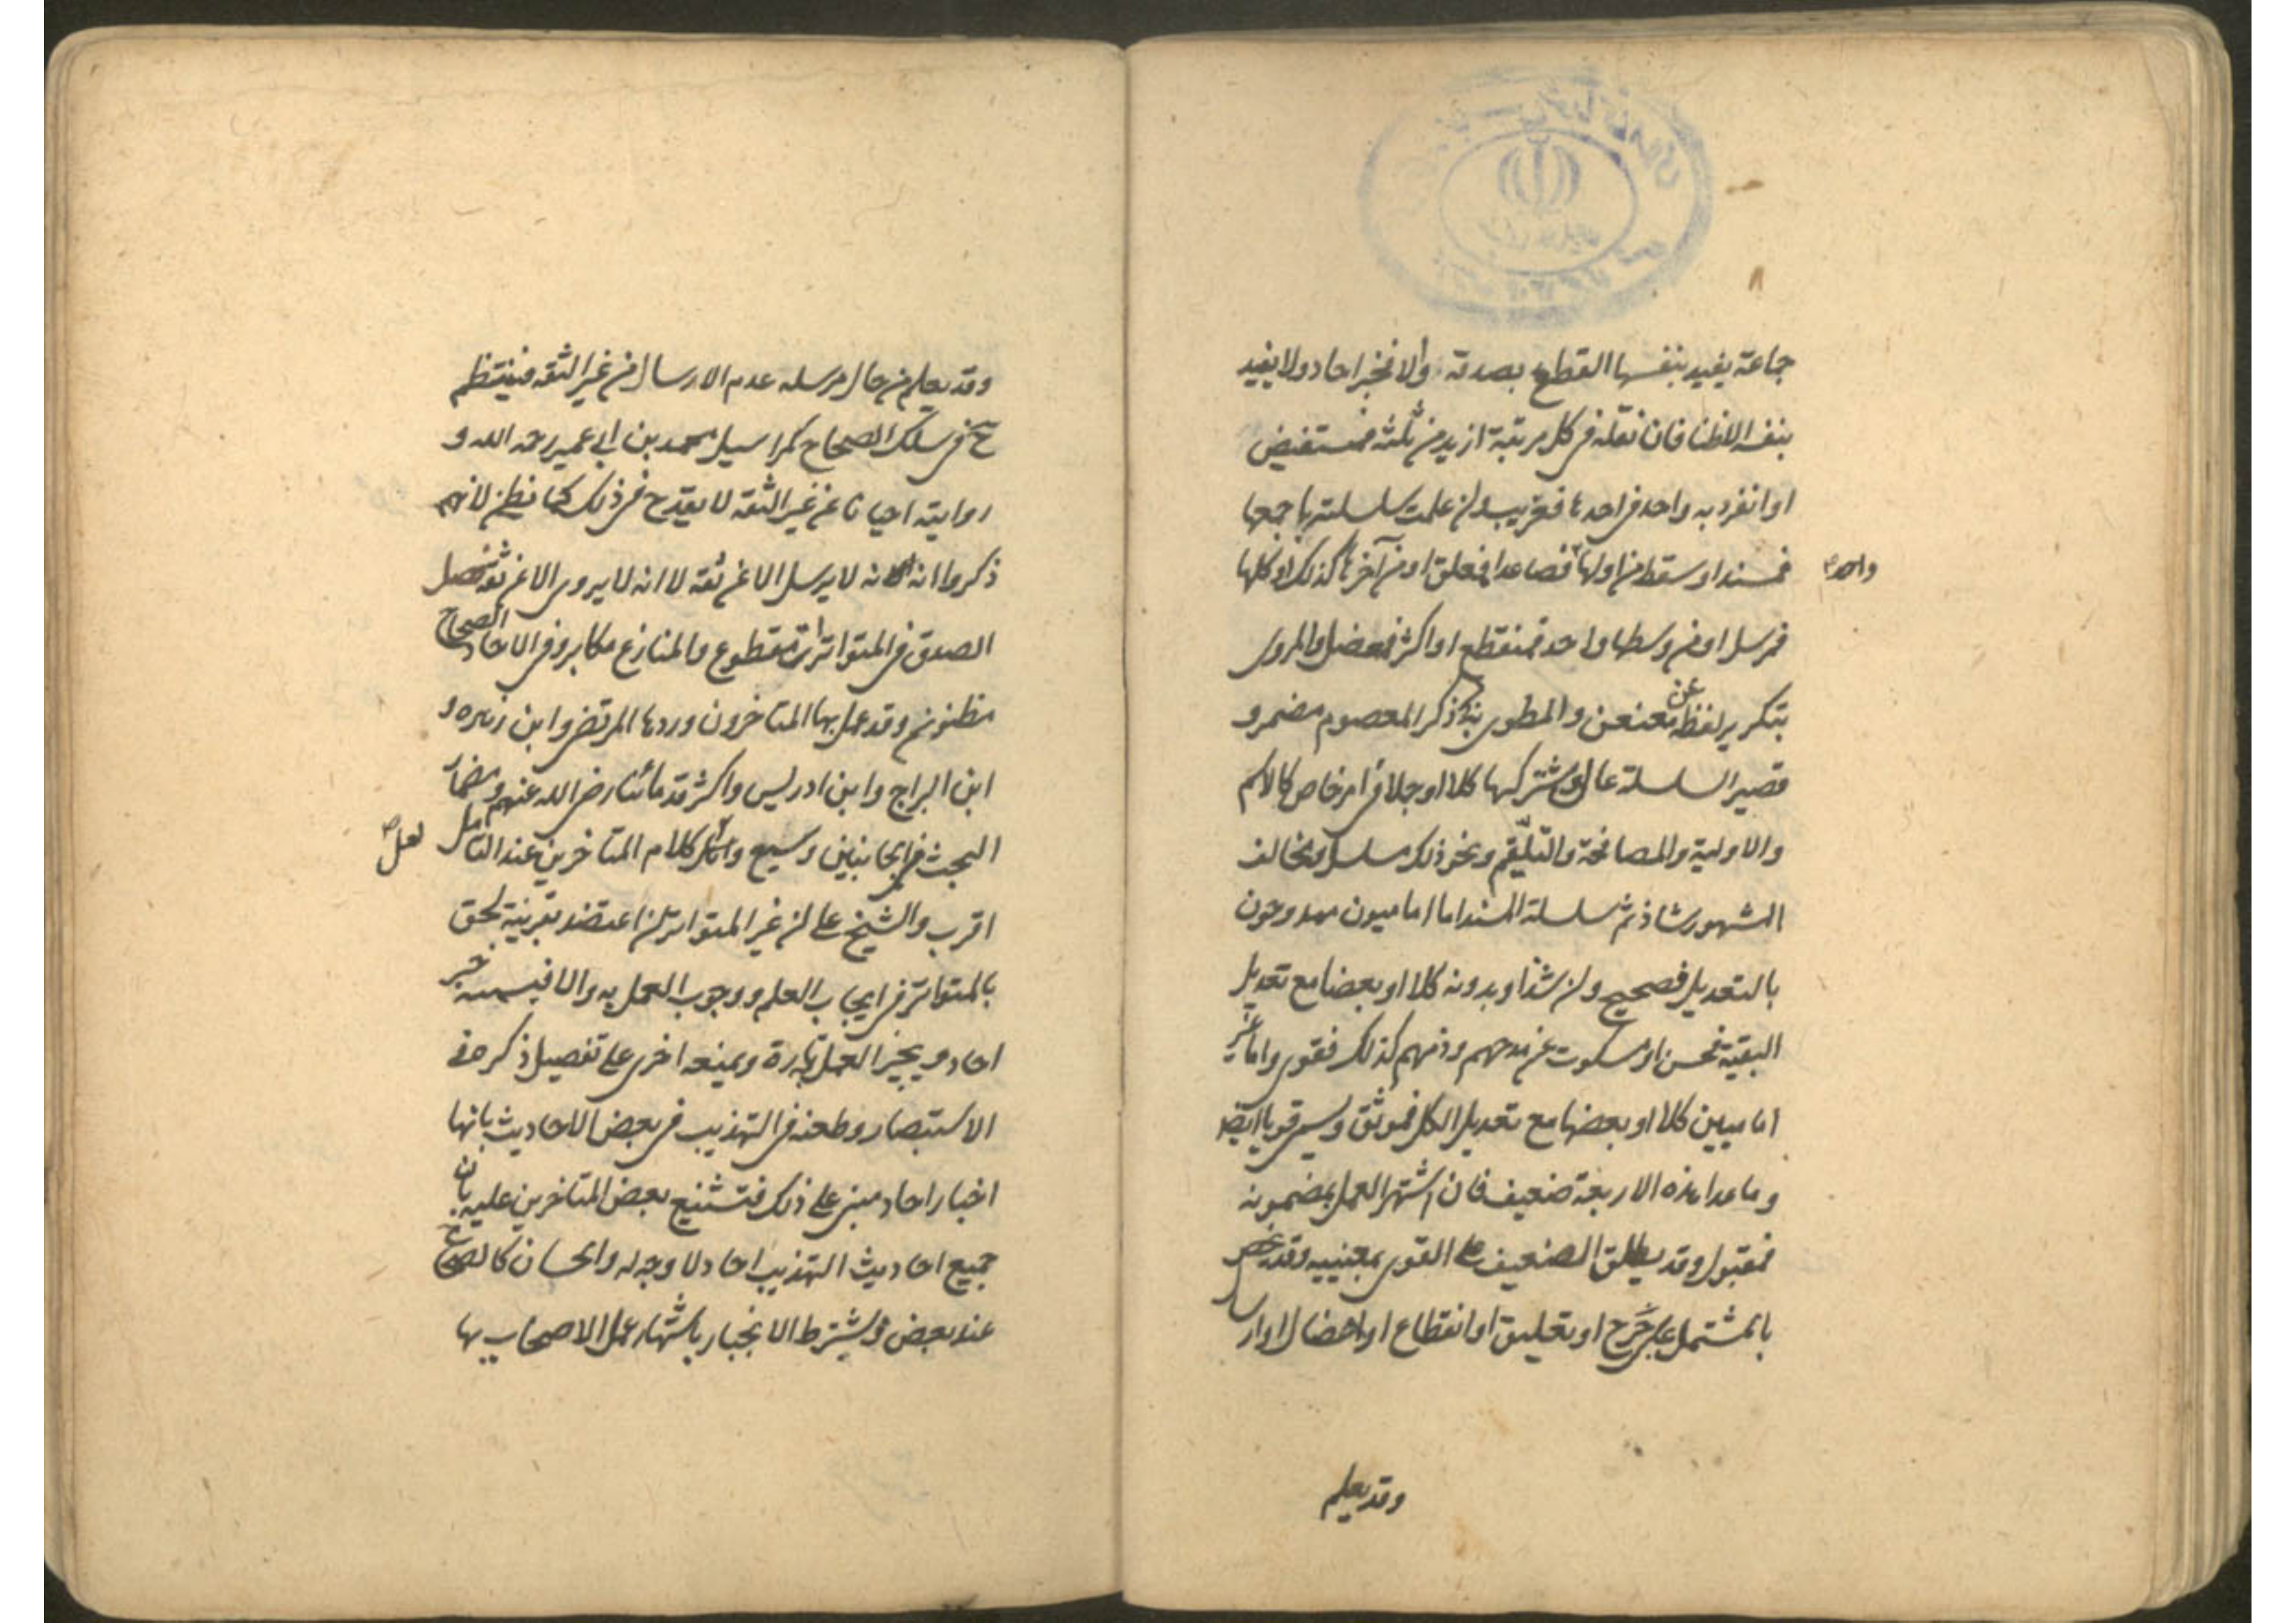 جاعة يفيد بنفسها القطع بصدقه والا فخبر احاد ولا يفيد
بنفسه الا ظنا فان نقله في كل مرتبة ازيد من ثلثة فمستفيض
او انفرد به واحد في احدها فغريب وان علمت سلسلته باجمعها
فمسند او سقط من اولها فصاعدا فمعلق او من آخرها كذلك او كلها
واحد
فمرسل او من وسطها واحد فمنقطع او اكثر فمعضل والمروي
بتكرير لفظة عن معنعن والمطوي ذكر المعصوم مضمر و
قصير السلسلة عال ومشترك كلها كلا او جلا في امر خاص كالاسم
والاولية والمصافحة والتلقيم ونحو ذلك مسلسل ومخالف
المشهور شاذ ثم سلسلة السند اما اماميون ممدوحون
بالتعديل فصحيح وان شذ او بدونه كلا او بعضا مع تعديل
البقية فحسن او مسكوت عن مدحهم وذمهم كذلك فقوي واما غير
اماميين كلا او بعضها مع تعديل الكل فموثق ويسمى قويا ايضا
وما عدا هذه الاربعة ضعيف فان اشتهر العمل بمضمونه
فمقبول وقد يطلق الضعيف على القوي بمعنييه وقد يخص
بالمشتمل على جرح او تعليق او انقطاع او اعضال او ارسال
وقد يعلم
وقد يعلم من حال مرسله عدم الارسال من غير الثقه فينتظم
ح في سلك الصحاح كمراسيل محمد بن ابي عمير رحمه الله و
روايته احيانا عن غير الثقة لا يقدح في ذلك كما يظن لانهم
ذكروا انه لا يرسل الا عن ثقة لا انه لا يروي الا عن ثقة فصل
الصدق في المتواترات مقطوع والمنازع مكابر وفي الاحاد الصحاح
مظنون وقد عمل بها المتاخرون وردها المرتضى وابن زهره و
ابن البراج وابن ادريس واكثر قدمائنا رضي الله عنهم ومضمار
البحث من الجانبين وسيع و كلام المتاخرين عند التامل
لعل
اقرب والشيخ على ان غير المتواتر ان اعتضد بقرينة لحق
بالمتواتر في ايجاب العلم ووجوب العمل به والا فيسميه خبر
احاد ويجيز العمل به تارة ويمنعه اخرى على تفصيل ذكره في
الاستبصار وطعنه في التهذيب في بعض الاحاديث بانها
اخبار احاد مبني على ذلك فتشنيع بعض المتاخرين عليه بان
جميع احاديث التهذيب احاد لا وجه له والحسان كالصحاح
عند بعض ويشترط الانجبار باشتهار عمل الاصحاب بها